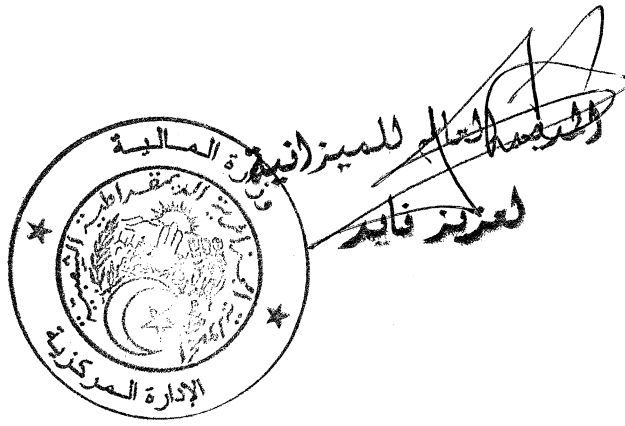 المدير العام للميزانية
لعزيز فايد
وزارة المالية
الجمهورية الجزائرية الديمقراطية الشعبية
الإدارة المركزية